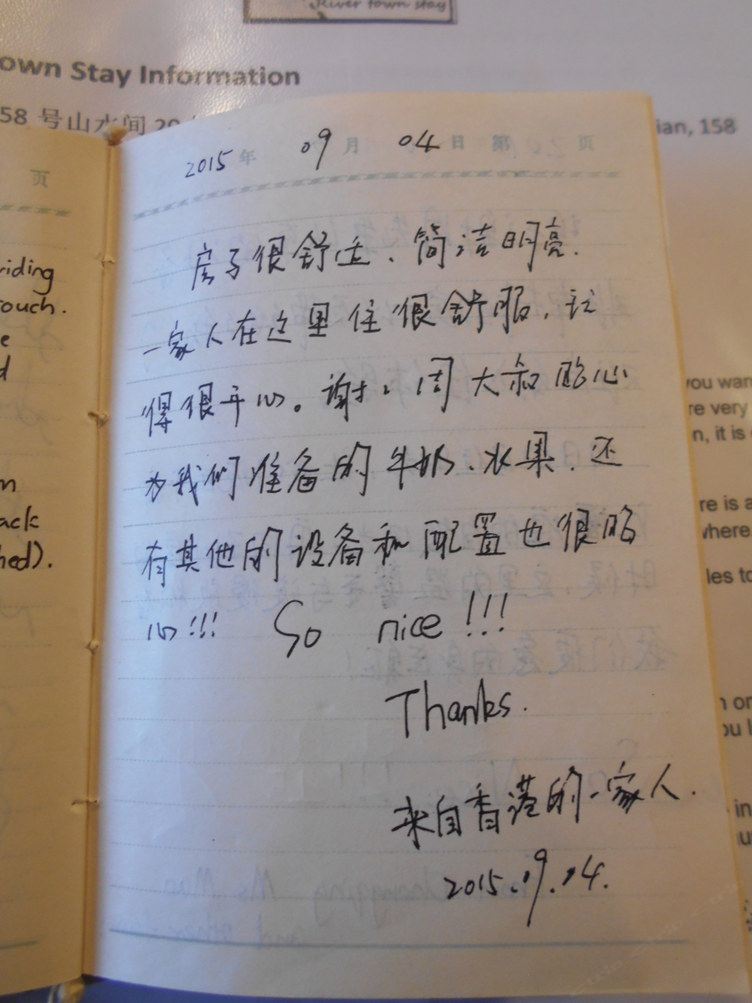 River town stay
own Stay Information
58 号山水间 20
ian, 158
页
2015 年 09 月 04 日 第 页
房子很舒适、简洁明亮.
一家人在这里住很舒服,过
得很开心。谢谢周大和贴心
为我们准备的牛奶、水果,还
有其他的设备和配置也很贴
心!!! So nice!!!
Thanks.
来自香港的一家人.
2015.09.04.
riding
ouch.
e
d
m
ack
hed).
you wan
re very
n, it is
re is a
where
les to
n on
ou l
in